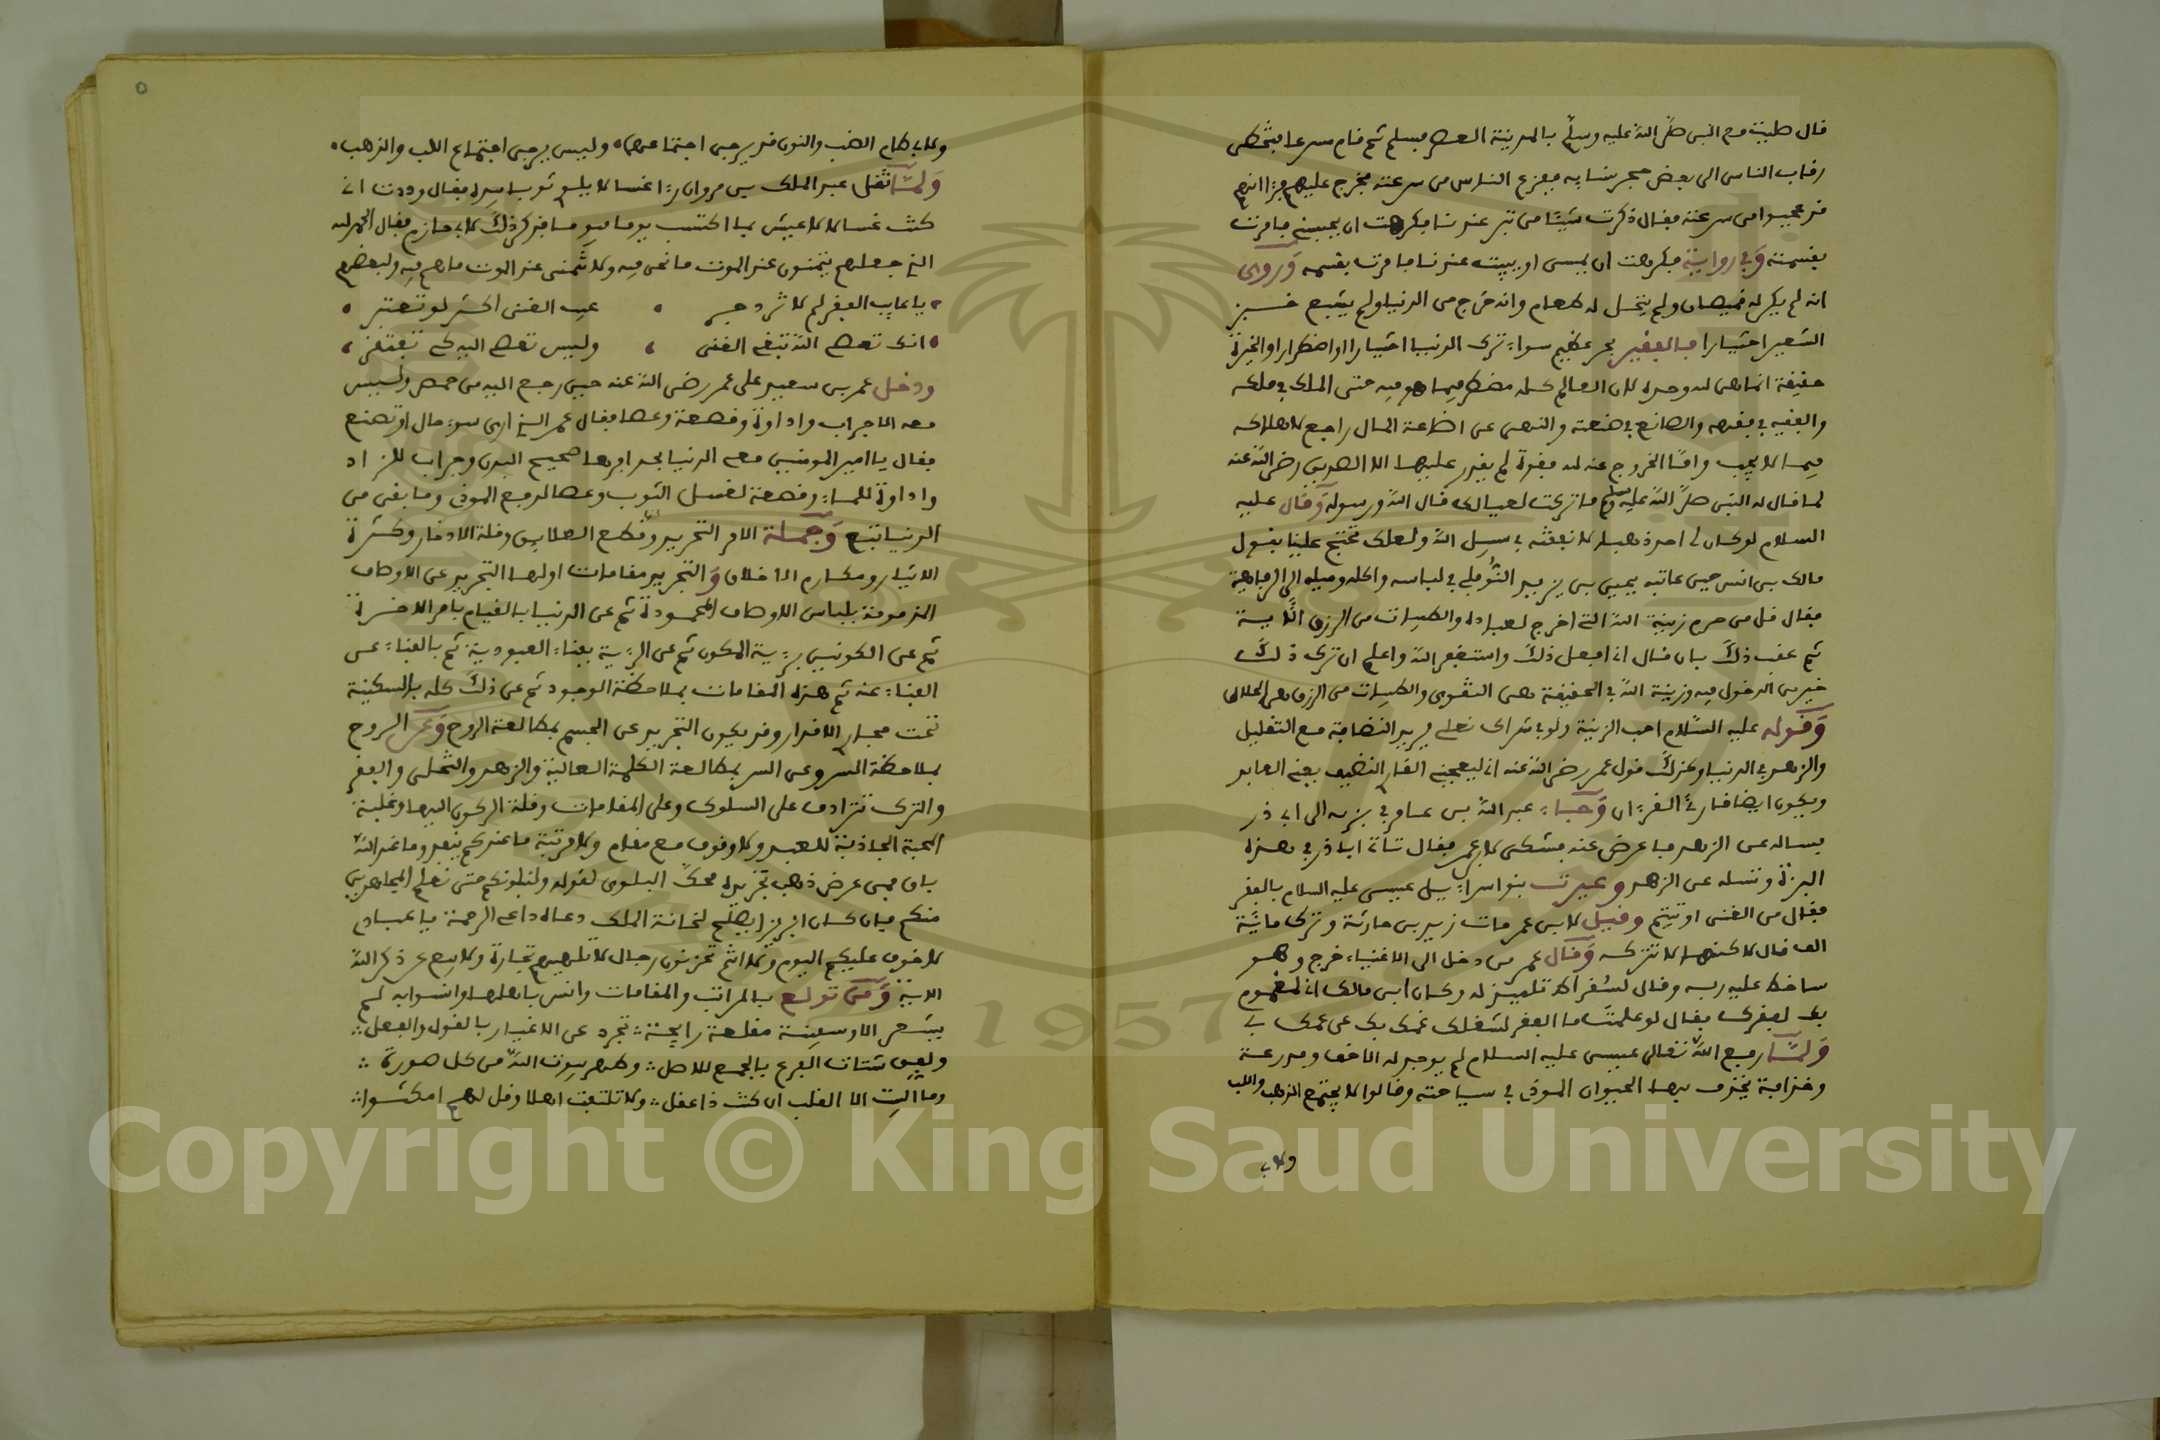 قال صليت مع النبي صلى الله عليه وسلم بالمدينة العصر فسلم ثم قام مسرعا فتخطى
رقاب الناس الى بعض حجر نسايه ففزع الناس من سرعته فخرج عليهم فرءا انهم
قد عجبوا من سرعته فقال ذكرت شيئا من تبر عندنا فكرهت ان يحبسني فامرت
بقسمته وفي رواية فكرهت ان يمسى او يبيت عندنا فامرت بقسمه وروى
انه لم يكن له قميصان ولم ينخل له طعام وانه خرج من الدنيا ولم يشبع خبز
الشعير اختيارا فالفقير بحر عظيم سواء ترك الدنيا اختيارا او اضطرارا والخيرة
حقيقة انما هي لله وحده لان العالم كله مضطر فيما هو فيه حتى الملك في ملكه
والفقيه في فقهه والصانع في صنعته والنهى عن اضاعة المال راجع لاهلاكه
فيما لا يجب وامّا الخروج عنه لله فقوة لم يقدر عليها الا الصديق رضي الله عنه
لما قال له النبي صلى الله عليه وسلم ما تركت لعيالك قال الله ورسوله وقال عليه
السلام لو كان لي احد ذهبا لانفقته في سبيل الله ولعلك تحتج علينا بقول
مالك بن انس حين عاتبه يحيى بن يزيد النوفلي في لباسه واكله وميله الى الرفاهية
فقال قل من حرم زينة الله التي اخرج لعباده والطيبات من الرزق الاية
ثم عقب ذلك بان قال اني افعل ذلك واستغفر الله واعلم ان ترك ذلك
خير من الدخول فيه وزينة الله في الحقيقة هي التقوى والطيبات من الرزق هي الحلال
وقوله عليه السلام احب الزينة ولو في شراك نعلي يريد النظافة مع التقليل
والزهد في الدنيا وكذلك قول عمر رضي الله عنه اني ليعجبني القار النظيف يعني العابد
ويكون ايضا قارئ القرءان وجاء عبد الله بن عامر في بزته الى ابي ذر
يساله عن الزهد فاعرض عنه فشكى لابن عمر فقال تاتي اباذر في هذه
البزة وتسله عن الزهد وعيرت بنو اسراءيل عيسى عليه السلام بالفقر
فقال من الغنى اوتيتم وقيل لابن عمر مات زيد بن حارثة وترك ماية
الف قال لاكنها لا تتركه وقال عمر من دخل الى الاغنياء خرج وهو
ساخط عليه ربه وقال لسقراط تلميذ له وكان ابن مالك اني لمغموم
بك لفقرك فقال لو علمت ما الفقر لشغلك غمك بك عن غمك بي
ولمّا رفع الله تعالى عيسى عليه السلام لم يوجد له الا خف ومدرعة
وخذافة يخذف بها الحيوان الموذي في سياحته وقالوا لا يجتمع الذهب واللب
ولاب
٥
ولابي طام الضب والنون قد يرجى اجتماعهما وليس يرجى اجتماع اللب والذهب
ولمّا ثقل عبد الملك بن مروان رءا غسالا يلوي ثوبا بيده فقال وددت اني
كنت غسالا لا اعيش بما اكتسب يوما فيوما فذكر ذلك لابي حازم فقال الحمد لله
الذي جعلهم يتمنون عند الموت ما نحن فيه ولا نتمنى عند الموت ما هم فيه ولبعضهم
يا عايب الفقر لم لا تزدجر عيب الغنى اكثر لو تعتبر
انك تعصي الله تبغي الغنى وليس تعصي الله كي تفتقر
ودخل عمر بن سعيد على عمر رضي الله عنه حين رجع اليه من حمص وليس
معه الا جراب واداوة وقصعة وعصا فقال عمر الذي ارى سوء حال او تصنع
فقال يا امير المومنين معي الدنيا بحذافرها صحيح البدن وجراب للزاد
واداوة للماء وقصعة لغسل الثوب وعصا لدفع الموذي وما بقي من
الدنيا تبع وجملة الامر التجريد وقطع العلايق وقلة الادخار وكثرة
الايثار ومكارم الاخلاق والتجريد مقامات اولها التجريد عن الاوصاف
المذمومة بلباس الاوصاف المحمودة ثم عن الدنيا بالقيام بامر الاخرة
ثم عن الكونين برءية المكون ثم عن الرءية بفناء العبودية ثم بالفناء عن
الفناء عنه ثم هذه المقامات بملاحظة الوجود ثم عن ذلك كله بالسكينة
تحت مجار الاقدار وقد يكون التجريد عن الجسم بمطالعة الروح وعن الروح
بملاحظة السر وعن السر بمطالعة الكلمة العالية والزهد والتخلى والفقر
والترك تترادف على السلوك وعلى المقامات وقلة الركون اليها وغلبة
المحبة الجاذبة للعبد ولا وقوف مع مقام ولا مرتبة ما عندكم ينفد وما عند الله
باق فمن عرض ذهب تجريده محك البلوى لقوله ولنبلونكم حتى نعلم المجاهدين
منكم فان كان ابريزا يصلح لخانة الملك دعاه داعي الرحمة يا عبادي
لا خوف عليكم اليوم ولا انتم تحزنون رجال لا تلهيهم تجارة ولا بيع عن ذكر الله
الاية ومن تولع بالمراتب والمقامات وانس باهلها وانسوا به لم
يشعر الا وسفينة مقلعة رايحة تجرد عن الاغيار بالقول والفعل
ولفق شتات الفرع بالجمع للاصل وطهر بيوت الله من كل صورة
وما البيت الا القلب ان كنت ذا عقل ولا تلتفت اهلا وقل لهم امكثوا
Copyright © King Saud University
1957